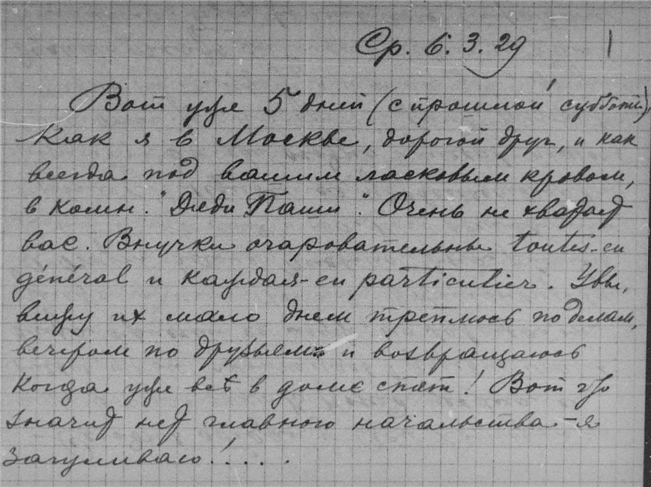 Ср. 6.3.29 1
Вот уже 5 дней (с прошлой субботы)
как я в Москве, дорогой друг, и как
всегда под вашим ласковым кровом,
в комн. "Дяди Паши". Очень не хватает
вас. Внучки очаровательны toutes-en
général и каждая-en particulier. Увы,
вижу их мало днем треплюсь по делам,
вечером по друзьям и возвращаюсь
когда уже все в доме спят! Вот что
значит нет главного начальства - я
загуливаю!....